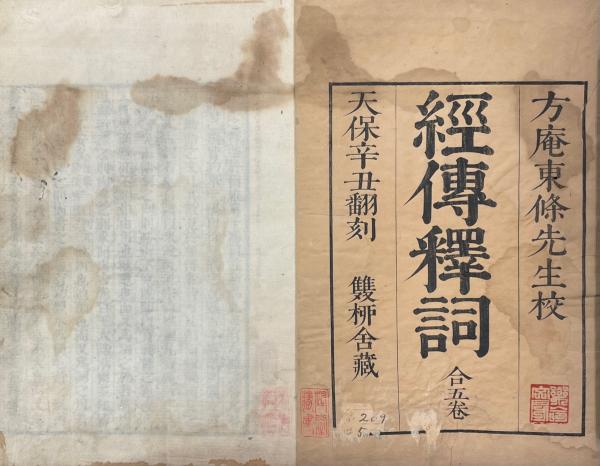 方庵東條先生校
經傳釋詞
合五卷
天保辛丑翻刻 雙桺舍藏
269
5